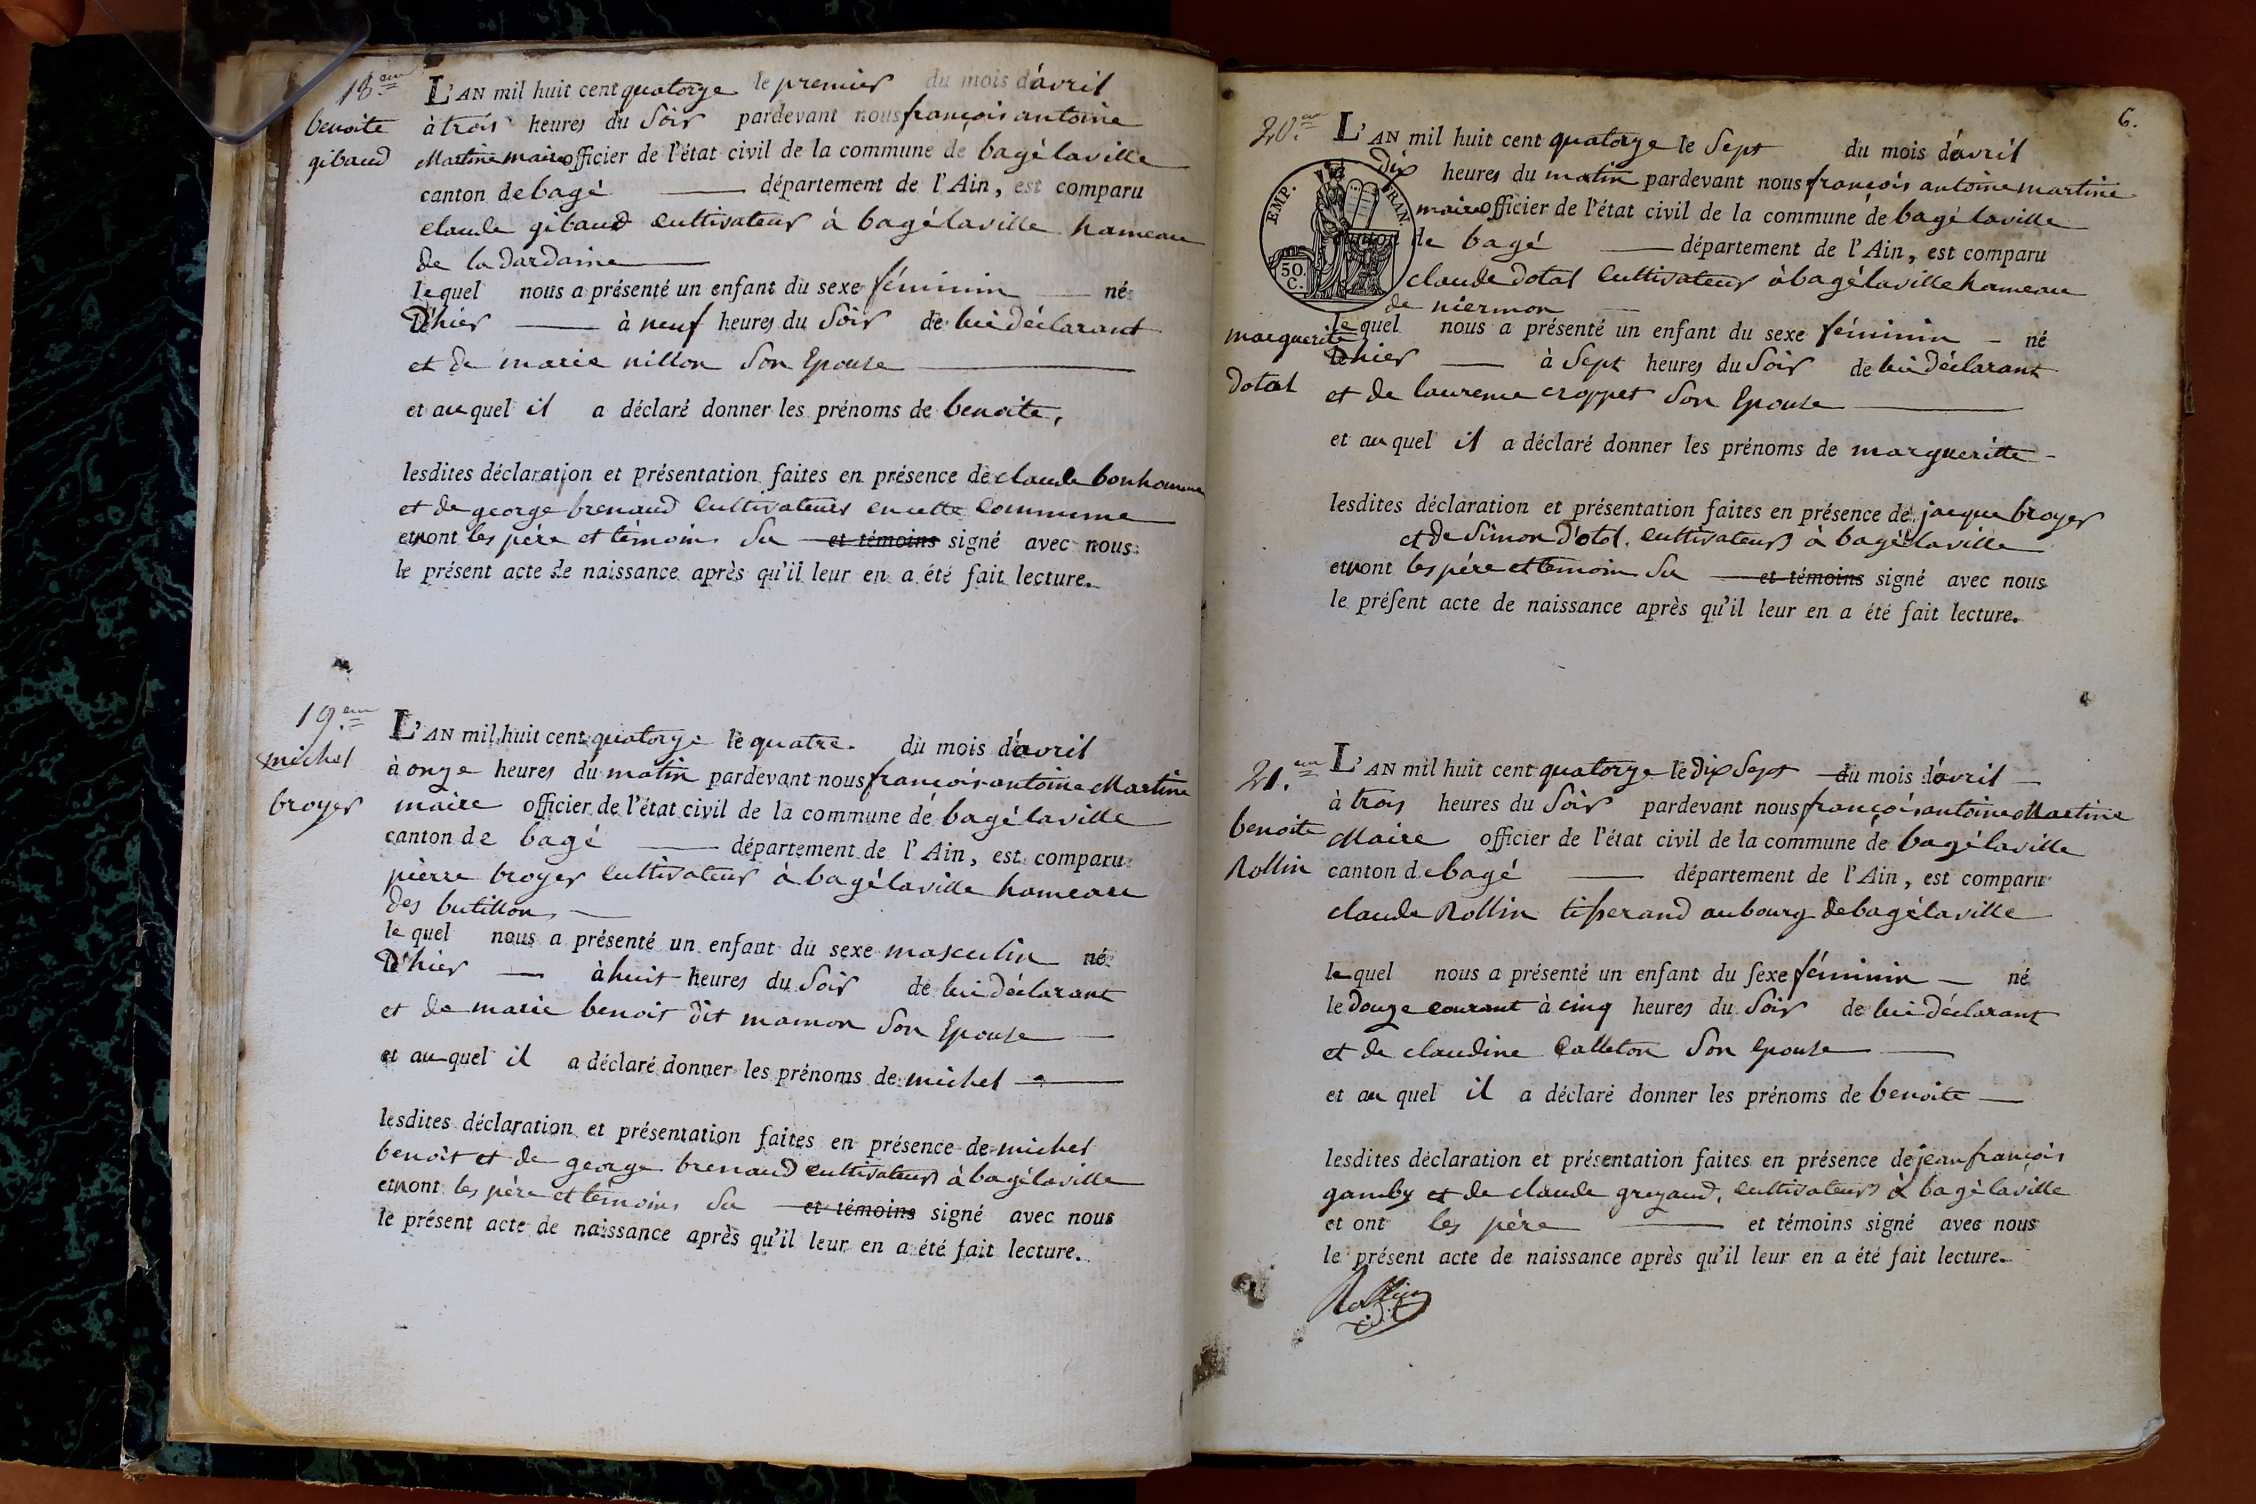 18.em
benoite
gibaud
L'AN mil huit cent quatorze le premier du mois d'avril
à trois heures du Soir pardevant nous françois antoine
Martine maire officier de l'état civil de la commune de bagé laville
canton de bagé département de l'Ain, est comparu
claude gibaud cultivateur à bagé laville hameau
de la dardaine
le quel nous a présenté un enfant du sexe féminin né
D'hier à neuf heures du Soir de lui déclarant
et de marie nillon Son Epouse
et au quel il a déclaré donner les prénoms de benoite,
lesdites déclaration et présentation faites en présence de claude bonhomme
et de george brenaud cultivateurs en cette commune
et ont les père et témoins Su et témoins signé avec nous
le présent acte de naissance après qu'il leur en a été fait lecture.
19.em
michel
broyer
L'AN mil huit cent quatorze le quatre. du mois d'avril
à onze heures du matin pardevant nous françois antoine Martine
maire officier de l'état civil de la commune de bagé laville
canton de bagé département de l'Ain, est comparu
pierre broyer cultivateur à bagé laville hameau
des butillon
le quel nous a présenté un enfant du sexe masculin né
D'hier à huit heures du Soir de lui déclarant
et de marie benoit dit mamon Son Epouse
et au quel il a déclaré donner les prénoms de michel
lesdites déclaration et présentation faites en présence de michel
benoit et de george brenaud cultivateurs à bagé laville
et ont les père et témoins Su et témoins signé avec nous
le présent acte de naissance après qu'il leur en a été fait lecture.
6.
20.em
marguerite
dotal
EMP. FRAN.
50. C.
L'AN mil huit cent quatorze le Sept du mois d'avril
Dix heures du matin pardevant nous françois antoine martine
maire officier de l'état civil de la commune de bagé laville
canton de bagé département de l'Ain, est comparu
claude dotal cultivateur à bagé laville hameau
de niermon
le quel nous a présenté un enfant du sexe féminin né
D'hier à Sept heures du Soir de lui déclarant
et de laurence croppet Son Epouse
et au quel il a déclaré donner les prénoms de marguerite
lesdites déclaration et présentation faites en présence de jacque broyer
et de Simon Dotal. cultivateurs à bagé laville
et ont les père et témoin Su et témoins signé avec nous
le présent acte de naissance après qu'il leur en a été fait lecture.
21.em
benoite
Rollin
L'AN mil huit cent quatorze le dix Sept du mois d'avril
à trois heures du Soir pardevant nous françois antoine Martine
Maire officier de l'état civil de la commune de bagé laville
canton de bagé département de l'Ain, est comparu
claude Rollin tisserand au bourg de bagé laville
le quel nous a présenté un enfant du sexe féminin né
le Douze courant à cinq heures du Soir de lui déclarant
et de claudine Calleton Son epouse
et au quel il a déclaré donner les prénoms de benoite
lesdites déclaration et présentation faites en présence de jean françois
gamby et de claude greyaud, cultivateurs à bagé laville
et ont les père et témoins signé avec nous
le présent acte de naissance après qu'il leur en a été fait lecture.
Rollin